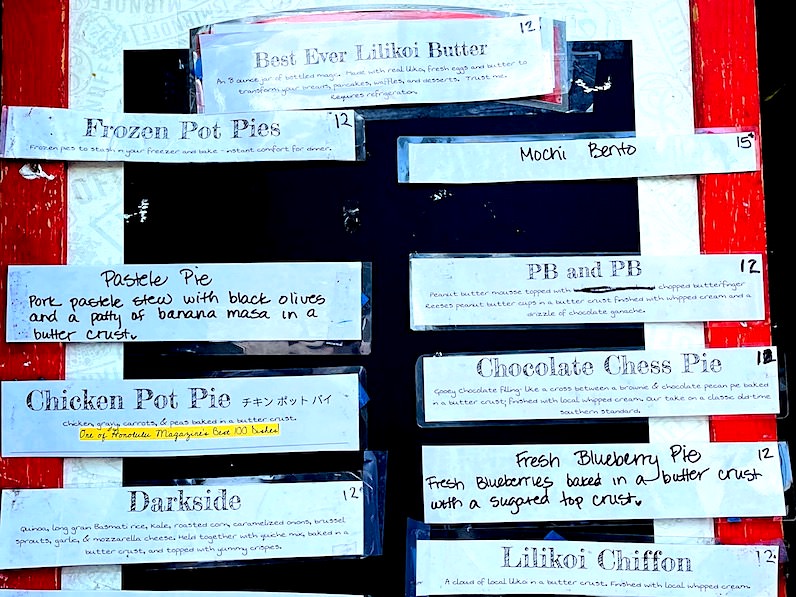 Best Ever Lilikoi Butter
12
An 8 ounce jar of bottled magic. Made with real liliko, fresh eggs and butter to
transform your breads, pancakes, waffles, and desserts. Trust me.
Requires refrigeration.
Frozen Pot Pies
12
Frozen pies to stash in your freezer and bake - instant comfort for dinner.
Mochi Bento
15
Pastele Pie
Pork pastele stew with black olives
and a patty of banana masa in a
butter crust.
PB and PB
12
Peanut butter mousse topped with chopped butterfinger
Reeses peanut butter cups in a butter crust finished with whipped cream and a
drizzle of chocolate ganache.
Chicken Pot Pie チキン ポット パイ
Chicken, gravy, carrots, & peas baked in a butter crust.
One of Honolulu Magazine's Best 100 Dishes
Chocolate Chess Pie
12
Gooey chocolate filling- like a cross between a brownie & chocolate pecan pie baked
in a butter crust; finished with local whipped cream. Our take on a classic old-time
southern standard.
Fresh Blueberry Pie
12
Fresh Blueberries baked in a butter crust
with a sugared top crust.
Darkside
12
Quinoa, long grain Basmati rice, Kale, roasted corn, caramelized onions, brussel
sprouts, garlic, & mozzarella cheese. Held together with quiche mix, baked in a
butter crust, and topped with yummy crispes.
Lilikoi Chiffon
12
A cloud of local liliko in a butter crust. Finished with local whipped cream.